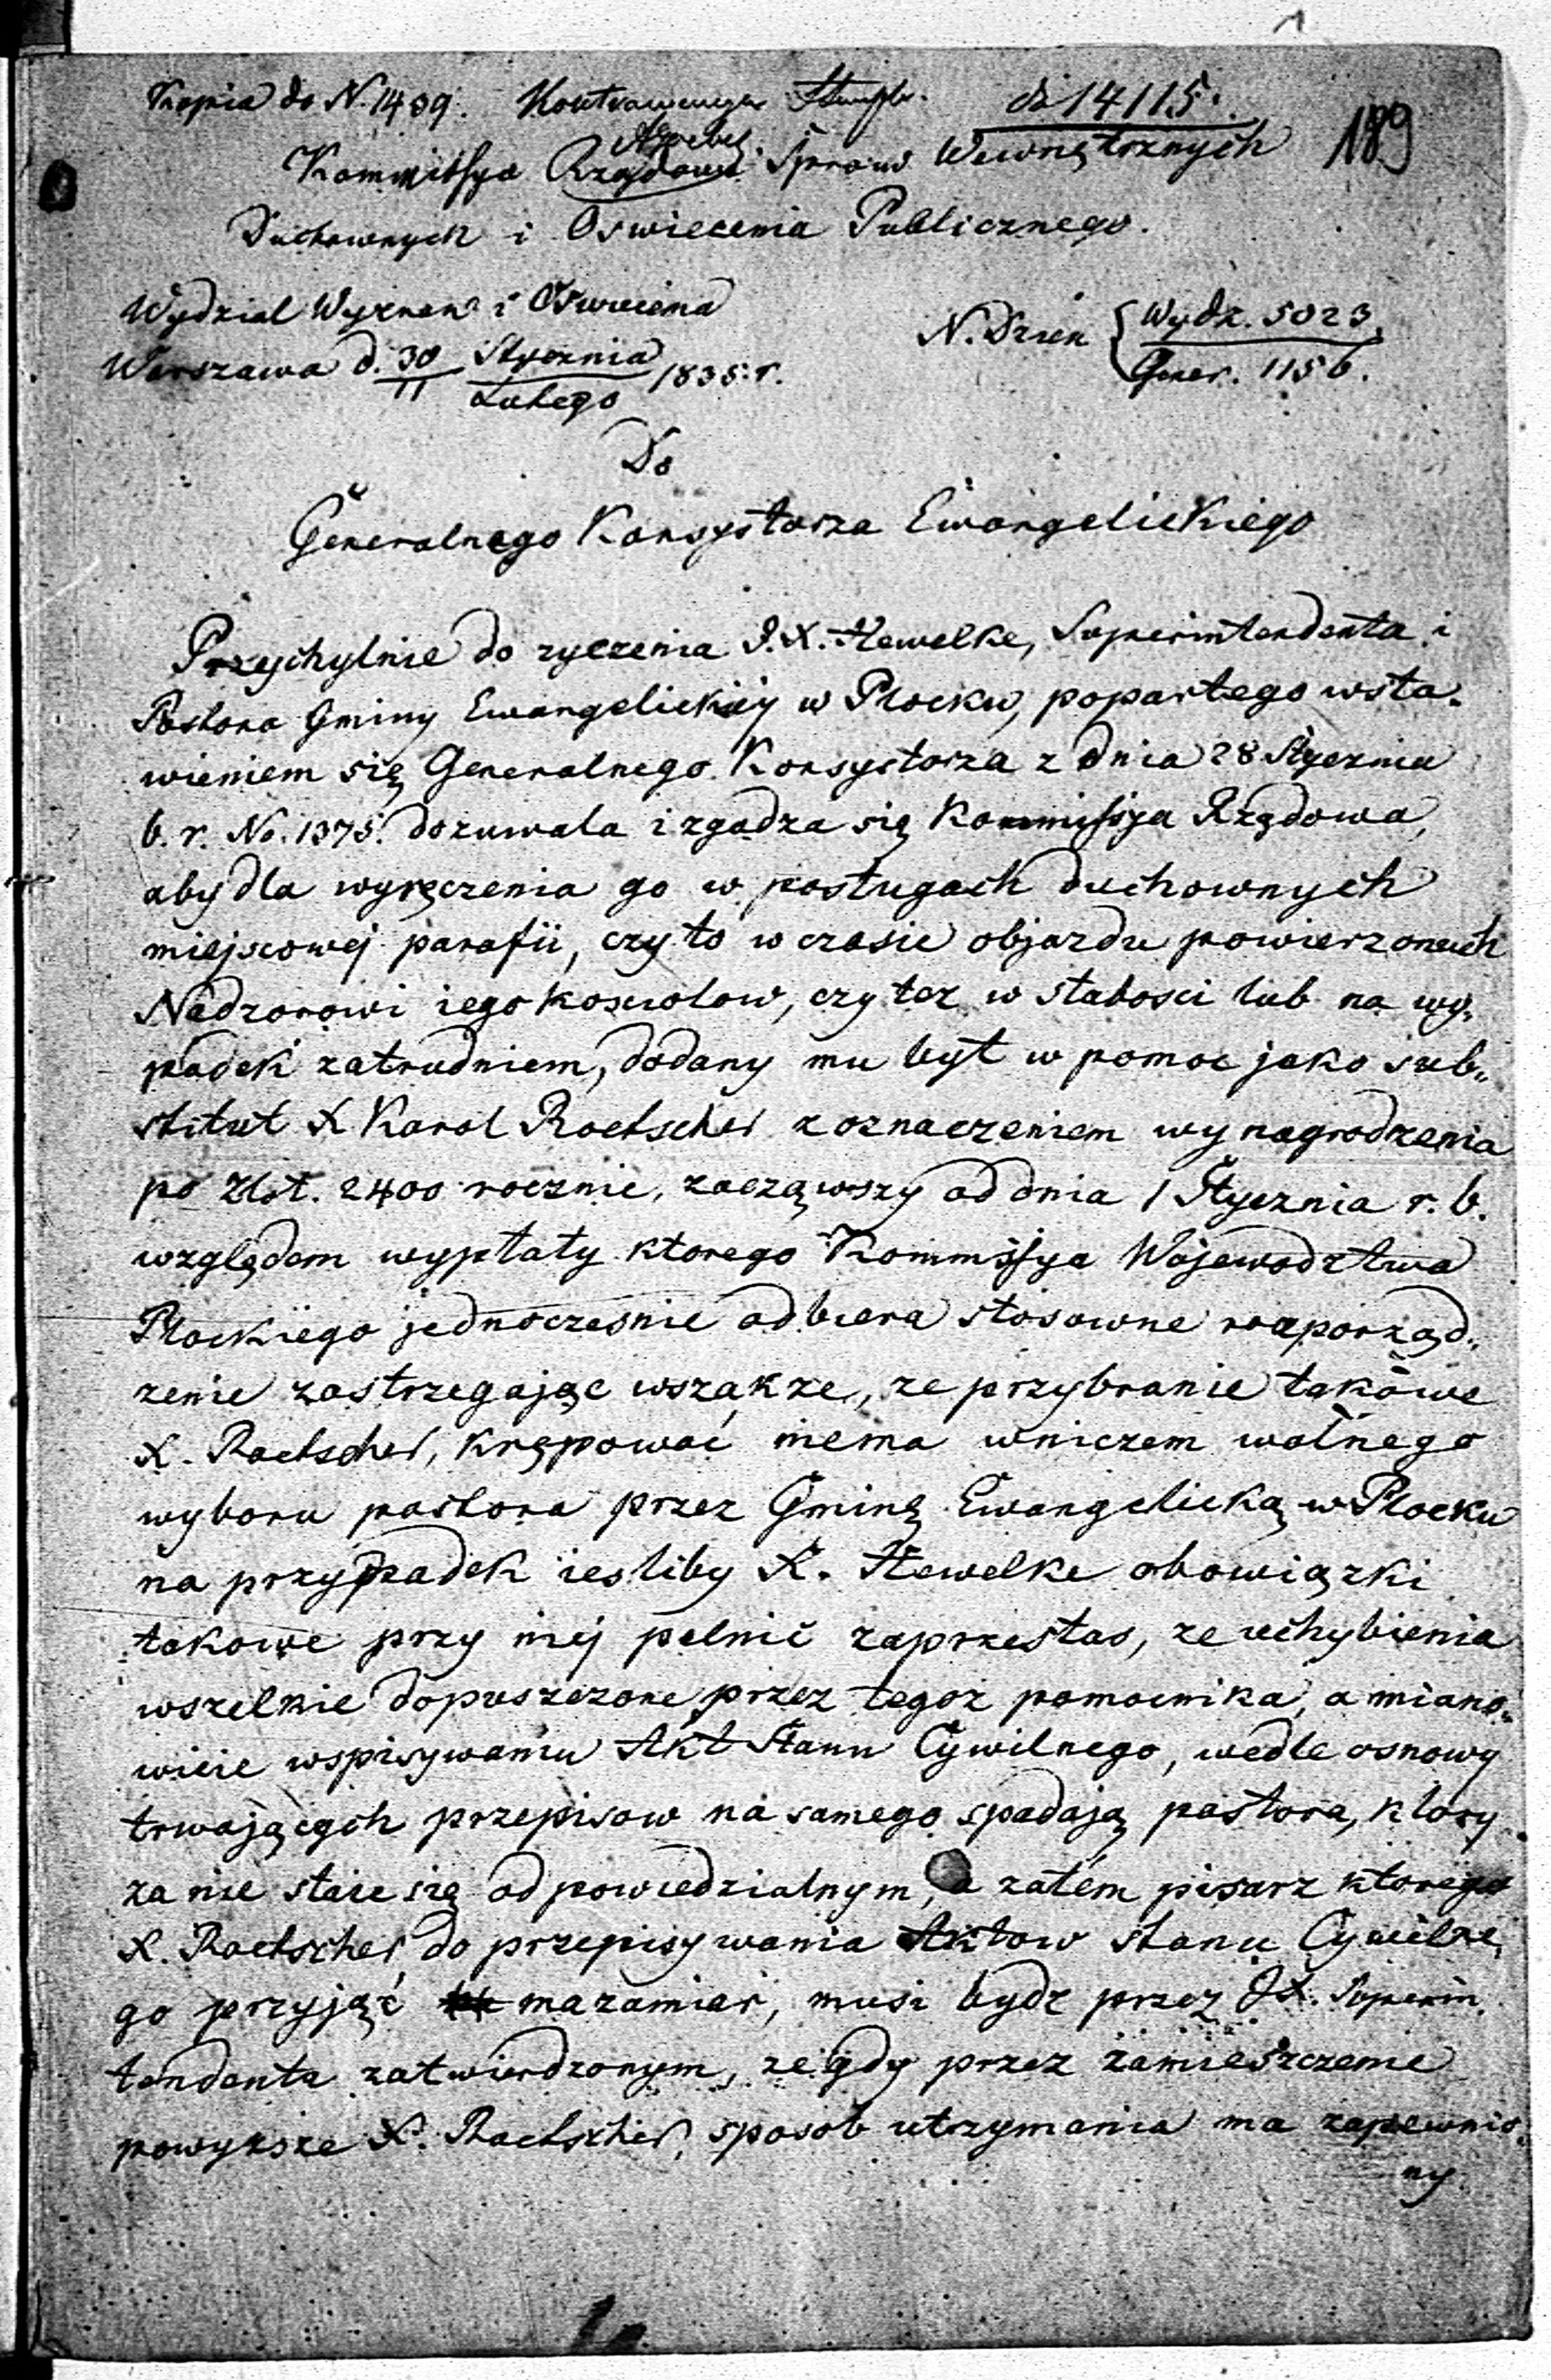 Kopia do N. 1439. di 14115.
189
Kommissya Rządowa Spraw Wewnętrznych
Duchownych i Oswiecenia Publicznego.
Wydzial Wyznan i Oswiecena
Warszawa d. 30/11 Stycznia/Lutego 1835. r.
N. Dzien { Wydz. 5023.
Gener. 1156.
Do
Generalnego Konsystorza Ewangelickiego
Przychylnie do zyczenia J. X. Hewelke, Superintendenta i
Pastora Gminy Ewangelickiéy w Plocku, popartego wsta„
wieniem się Generalnego Konsystorza z dnia 28 Stycznia
b. r. No. 1375. dozuwala i zgadza się Kommissya Rządowa,
aby dla wyręczenia go w posługach duchownych
miejscowej parafii, czy to w czasie objazdu powierzonech
Nadzorowi iego kosciolow, czy tez w słabosci lub na wy„
padek zatrudniem, dodany mu był w pomoc jako sub„
stitut X Karol Roetscher z oznaczeniem wynagrodzenia
po Złot. 2400 rocznie, zacząwszy od dnia 1 Stycznia r. b.
względem wypłaty ktorego Kommissya Wojewodztwa
Plockiego jednoczesnie odbiera stosowne rozporząd„
zenie zastrzegając wszakze, ze przybranie takowe
X. Roetscher, krępować niema wniczem wolnego
wyboru pastora przez Gminę Ewangelicką w Plocku
na przypadek iesliby X. Hewelke obowiązki
takowe przy niej pelnić zaprzestas, ze uchybienia
wszelkie dopuszczone przez tegoz pomocnika, a miano„
wicie wspisywaniu Akt Stanu Cywilnego, wedle osnowy
trwających przepisow na samego spadają pastora, ktory
za nie staie się odpowiedzialnym, a zatém pisarz ktorego
X. Roetscher do przepisywania Aktow stanu Cywilne„
go przyjąć ma zamiar, musi bydz przez JX. Superin„
tendenta zatwierdzonym, ze gdy przez zamieszczenie
powyzsze X. Roetscher, sposob utrzymania ma zapewnio„
ny